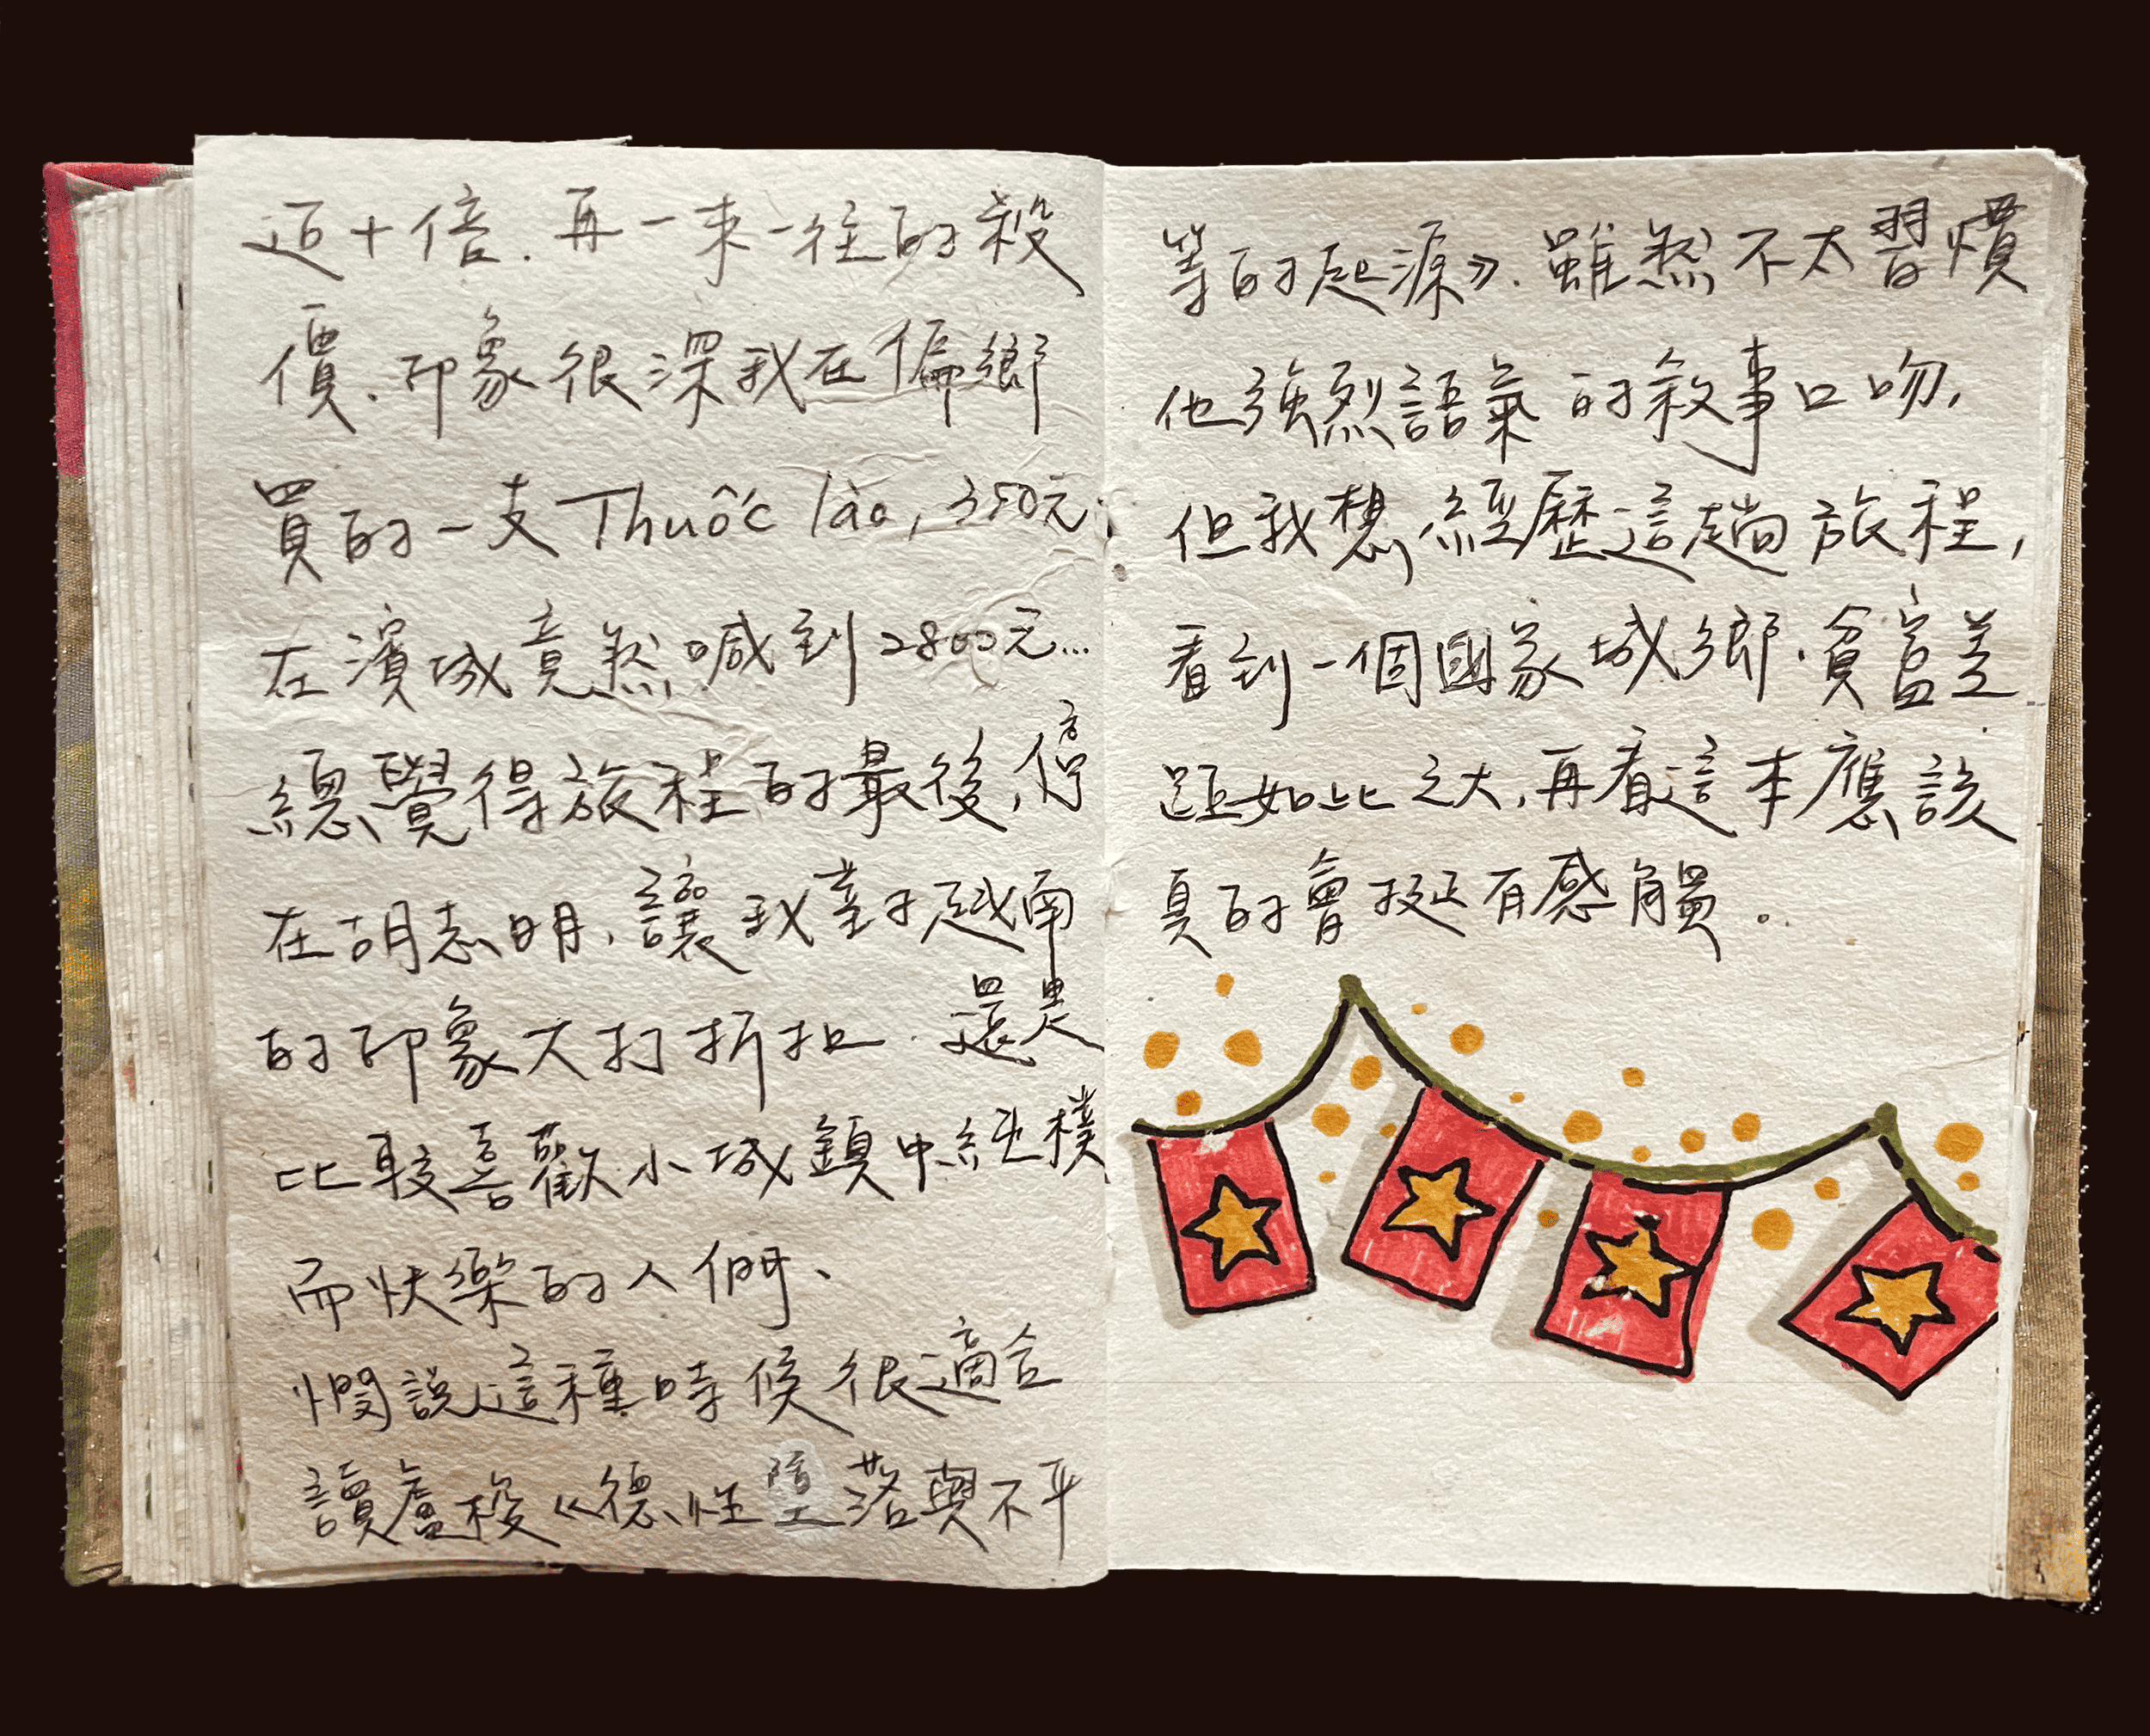 近十倍.再一來一往的殺
價.印象很深我在偏鄉
買的一支Thuốc lào,350元,
在濱城竟然喊到2800元...
總覺得旅程的最後,停
在胡志明,讓我對越南
的印象大打折扣.還是
比較喜歡小城鎮中純樸
而快樂的人們、
憪說這種時候很適合
讀盧梭《德性墮落與不平
等的起源》.雖然不太習慣
他強烈語氣的敘事口吻,
但我想,經歷這趟旅程,
看到一個國家城鄉.貧富差
距如此之大,再看這本應該
真的會挺有感觸。